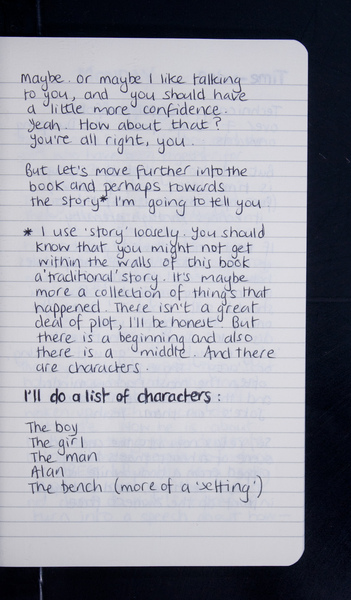 maybe. or maybe I like talking
to you, and you should have
a little more confidence.
Yeah. How about that?
You're all right, you.
But let's move further into the
book and perhaps towards
the story* I'm going to tell you.
* I use 'story' loosely. You should
know that you might not get
within the walls of this book
a 'traditional' story. It's maybe
more a collection of things that
happened. There isn't a great
deal of plot, I'll be honest. But
there is a beginning and also
there is a middle. And there
are characters.
I'll do a list of characters:
The boy
The girl
The man
Alan
The bench (more of a 'setting')